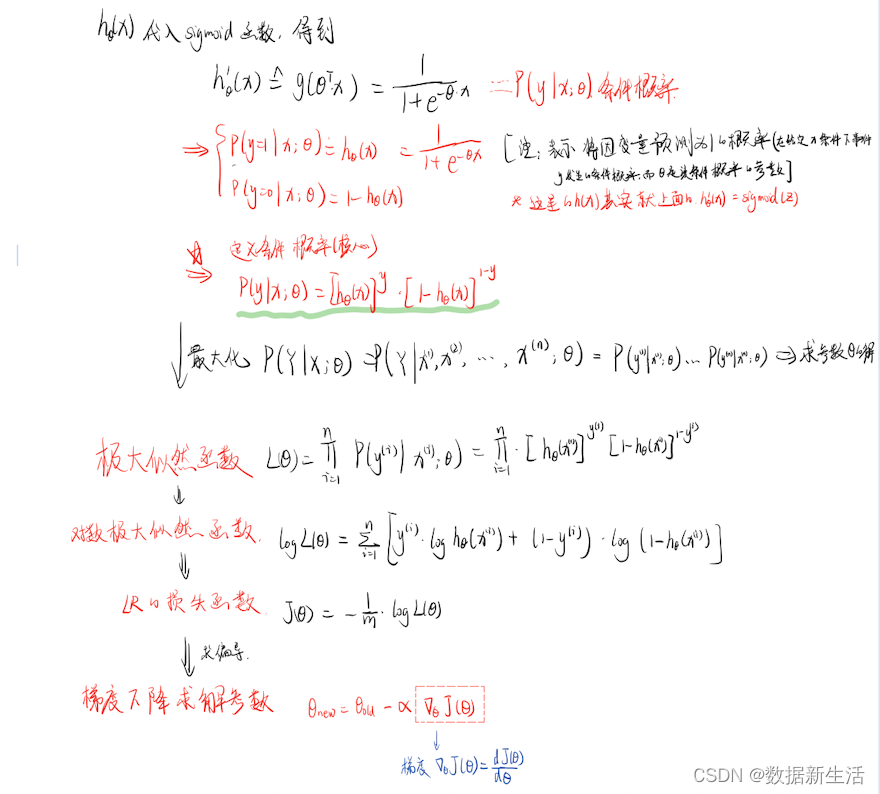 hθ(x) 代入 sigmoid 函数, 得到
h'θ(x) ≜ g(θᵀ·x) = 1/(1+e^-θ·x) = P(y|x;θ) 条件概率
⇒ { P(y=1|x;θ) = hθ(x) = 1/(1+e^-θx) [注: 表示将因变量预测为1的概率(在给定x条件下事件
P(y=0|x;θ) = 1-hθ(x) y发生的条件概率, 而θ是该条件概率的参数]
* 这里的h(x)其实就上面的 h'θ(x) = sigmoid(z)
☆ 定义条件概率(核心)
⇒ P(y|x;θ) = [hθ(x)]^y · [1-hθ(x)]^1-y
↓ 最大化 P(Y|X;θ) = P(Y|x^(1), x^(2), ..., x^(n); θ) = P(y^(1)|x^(1);θ)...P(y^(n)|x^(n);θ) ⇒ 求参数θ的解
极大似然函数 L(θ) = ∏_{i=1}^{n} P(y^(i)|x^(i);θ) = ∏_{i=1}^{n} · [hθ(x^(i))]^y^(i) [1-hθ(x^(i))]^1-y^(i)
↓
对数极大似然函数. log L(θ) = ∑_{i=1}^{n} [y^(i) · log hθ(x^(i)) + (1-y^(i)) · log (1-hθ(x^(i)))]
⇓
LR的损失函数. J(θ) = -1/m · log L(θ)
⇓ 求偏导.
梯度下降求解参数 θnew = θold - α ∇θ J(θ)
↓
梯度 ∇θ J(θ) = dJ(θ)/dθ
CSDN @数据新生活